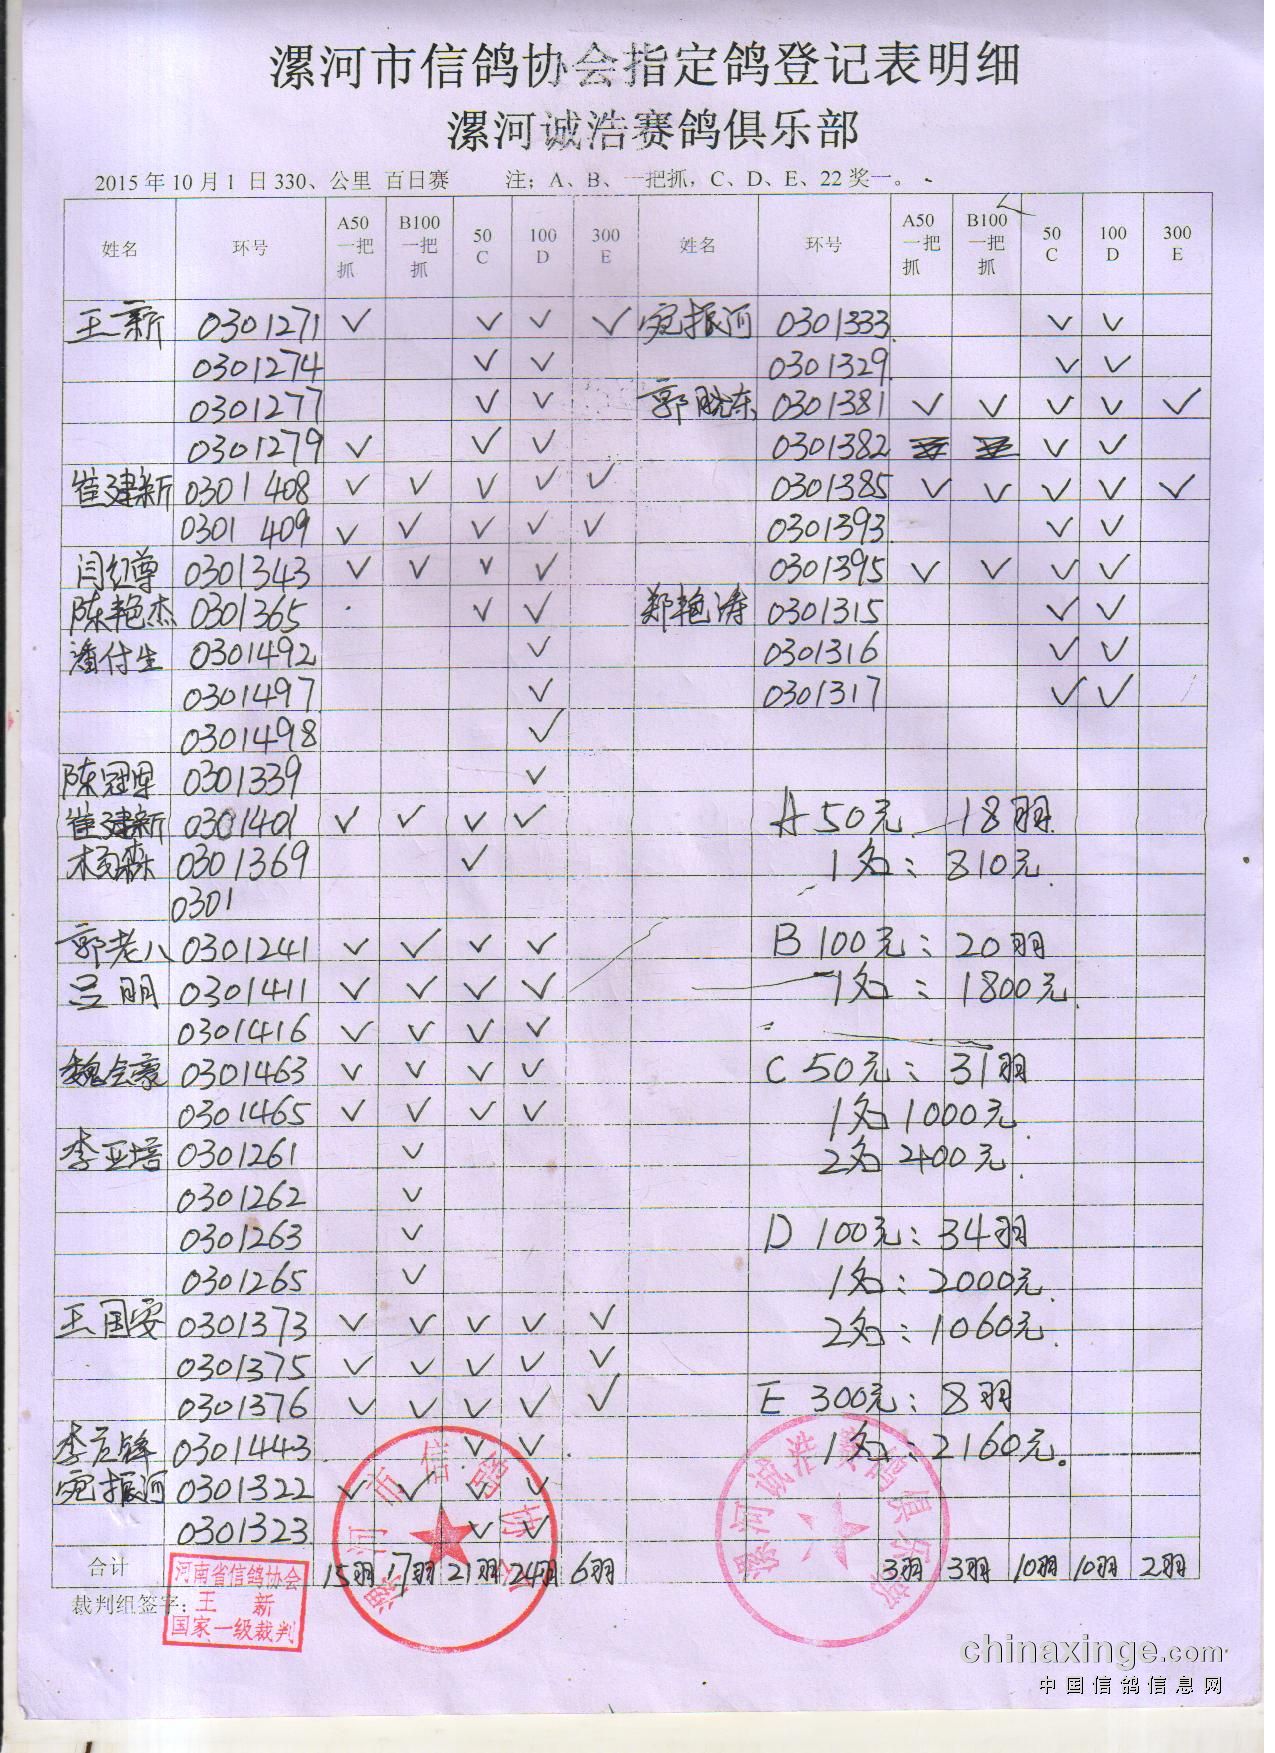 漯河市信鸽协会指定鸽登记表明细
漯河诚浩赛鸽俱乐部
2015年10月1日330、公里 百日赛 注；A、B、一把抓，C、D、E、22奖一。
姓名 环号 A50一把抓 B100一把抓 50C 100D 300E 姓名 环号 A50一把抓 B100一把抓 50C 100D 300E
王新 0301271 ✓ ✓ ✓ ✓ 宛振河 0301333 ✓ ✓
0301274 ✓ ✓ 0301329 ✓ ✓
0301277 ✓ ✓ 郭晓东 0301381 ✓ ✓ ✓ ✓ ✓
0301279 ✓ ✓ ✓ 0301382 ✓ ✓
崔建新 0301408 ✓ ✓ ✓ ✓ ✓ 0301385 ✓ ✓ ✓ ✓ ✓
0301409 ✓ ✓ ✓ ✓ ✓ 0301393 ✓ ✓
闫红尊 0301343 ✓ ✓ ✓ ✓ 0301395 ✓ ✓ ✓ ✓
陈艳杰 0301365 ✓ ✓ 郑艳涛 0301315 ✓ ✓
潘付生 0301492 ✓ 0301316 ✓ ✓
0301497 ✓ 0301317 ✓ ✓
0301498 ✓
陈冠军 0301339 ✓
崔建新 0301401 ✓ ✓ ✓ ✓ A 50元 18羽
杨森 0301369 ✓ 1名：810元
0301
郭老八 0301241 ✓ ✓ ✓ ✓ B 100元：20羽
吕明 0301411 ✓ ✓ ✓ ✓ 1名：1800元
0301416 ✓ ✓ ✓ ✓
魏会豪 0301463 ✓ ✓ ✓ ✓ C 50元：31羽
0301465 ✓ ✓ ✓ ✓ 1名1000元
李亚培 0301261 ✓ 2名400元
0301262 ✓
0301263 ✓ D 100元：34羽
0301265 ✓ 1名：2000元
王国安 0301373 ✓ ✓ ✓ ✓ ✓ 2名：1060元
0301375 ✓ ✓ ✓ ✓ ✓
0301376 ✓ ✓ ✓ ✓ ✓ E 300元：8羽
0301443 ✓ ✓ 1名：2160元。
宛振河 0301322 ✓ ✓ ✓ ✓
0301323 ✓ ✓
合计 15羽 17羽 21羽 24羽 6羽 3羽 3羽 10羽 10羽 2羽
裁判组签字：
河南省信鸽协会
王新
国家一级裁判
漯河市信鸽协会
漯河诚浩赛鸽俱乐部
chinaxinge.com
中国信鸽信息网